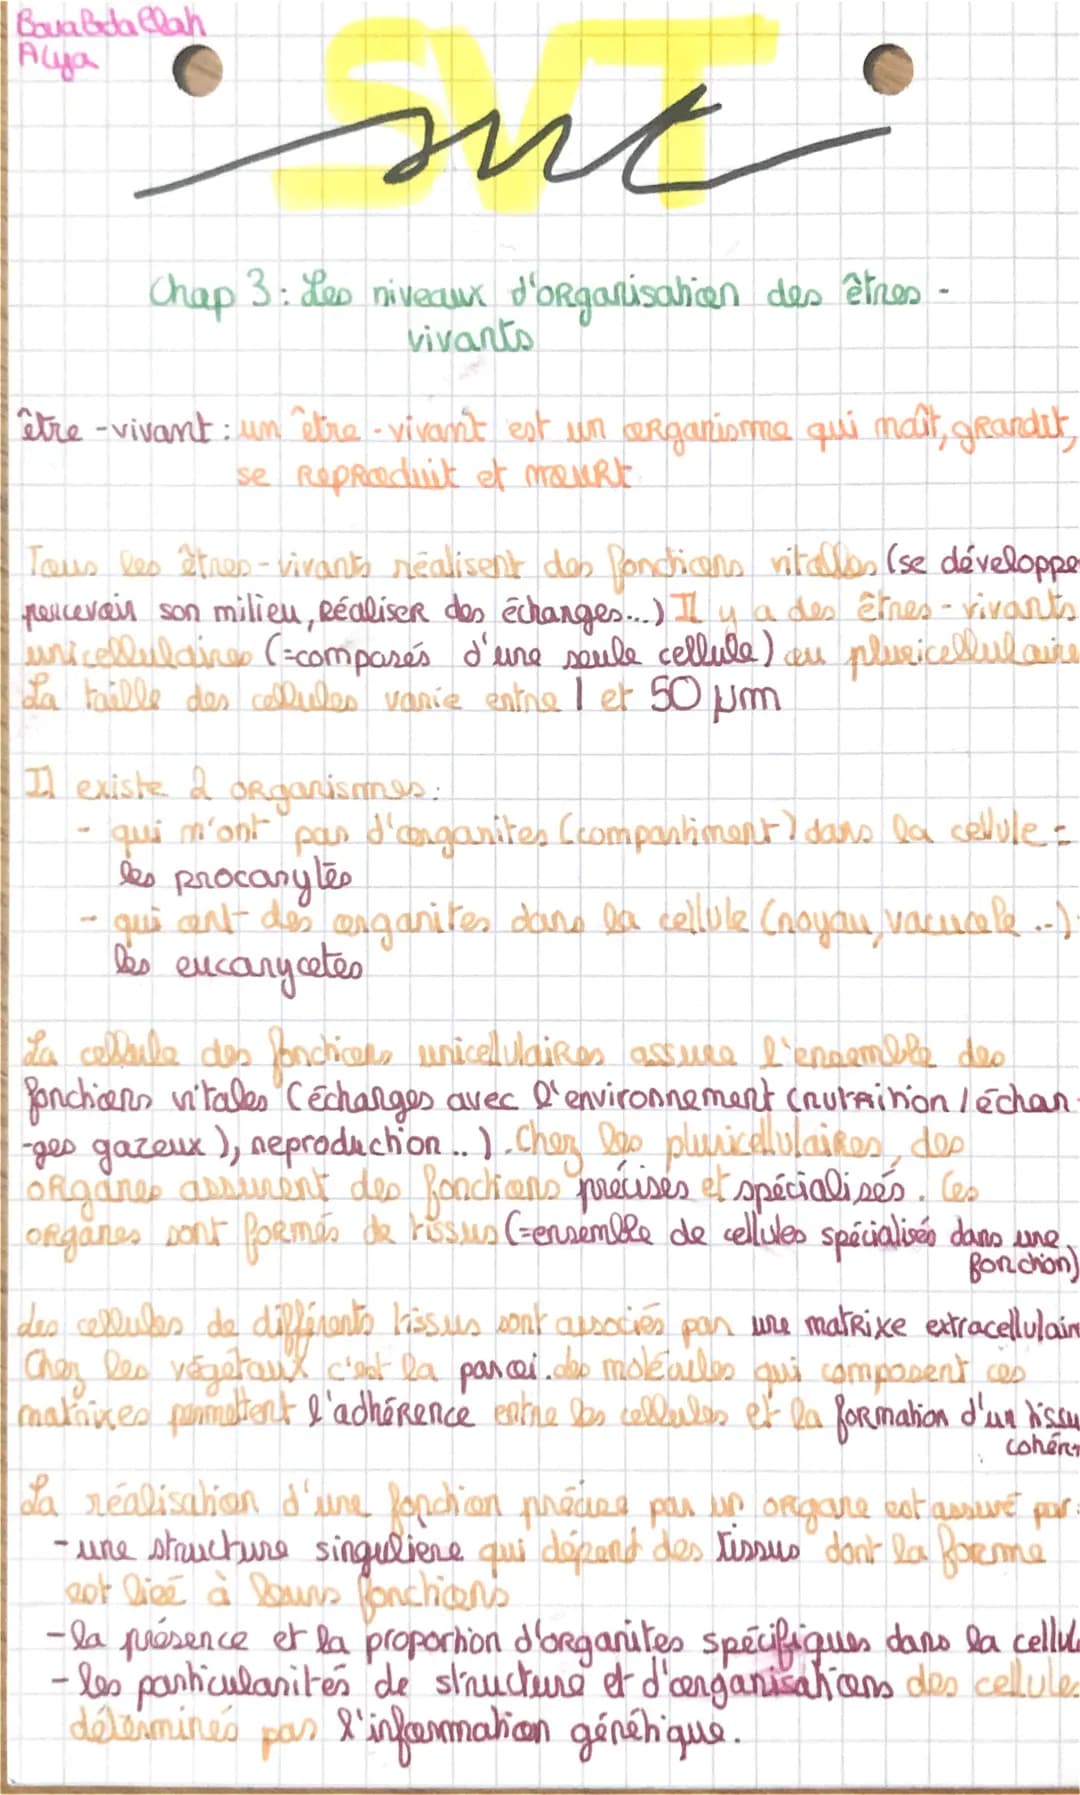 Bouabdallah
Alya
SVT
svt
Chap 3: Les niveaux d'organisation des êtres -
vivants
être -vivant : un être - vivant est un organisme qui naît, grandit,
se reproduit et meurt
Tous les êtres - vivants réalisent des fonctions vitalles (se développe
percevoir son milieu, réaliser des échanges...) Il y a des êtres - vivants
unicellulaires (=composés d'une seule cellule) ou pluricellulaire
La taille des cellules varie entre 1 et 50 µm
Il existe 2 organismes:
- qui n'ont pas d'organites (compartiment) dans la cellule =
les procarytes
- qui ont des organites dans la cellule (noyau, vacuole ..-)
les eucarycotes
La cellule des fonctions unicellulaires assure l'ensemble des
fonctions vitales (échanges avec l'environnement (nutrition / échan
-ges gazeux), reproduction .. ). Chez les pluricellulaires, des
organes assurent des fonctions précises et spécialisés. Ces
organes sont formés de tissus (=ensemble de cellules spécialisés dans une
fonction)
des cellules de différents tissus sont associés par une matrixe extracellulair
Chez les végétaux c'est la paroi. des molécules qui composent ces
matrices permettent l'adhérence entre les cellules et la formation d'un tissu
cohére
La réalisation d'une fonction précise par un organe est assuré par:
- une structure singulière qui dépend des tissus dont la forme
est liée à leurs fonctions
- la présence et la proportion d'organites spécifiques dans la cellule
- les particularités de structure et d'organisations des cellules
déterminés par l'information génétique.